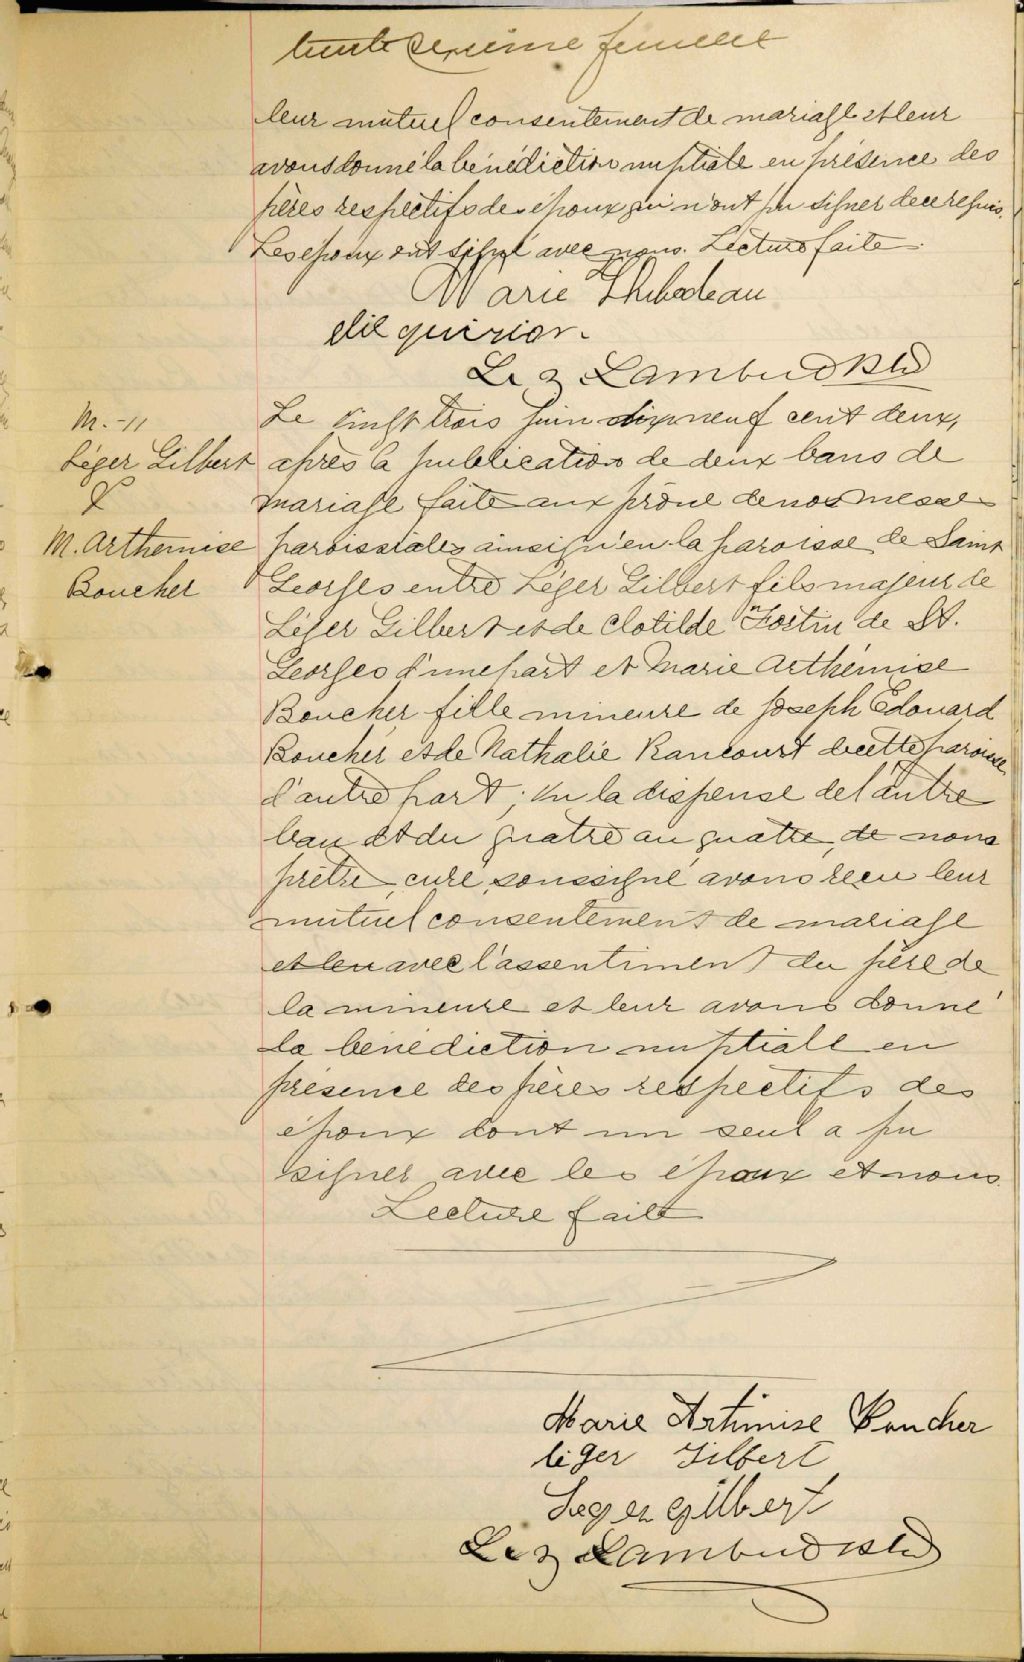 trente deuxième feuillet
leur mutuel consentement de mariage et leur
avons donné la bénédiction nuptiale en présence des
pères respectifs des époux qui n'ont pu signer de ce requis.
Les époux ont signé avec nous. Lecture faite.
Marie Thibodeau
elie quirion.
Lambert Ptre
M.-11
Léger Gilbert
&
M. Arthemise
Boucher
Le vingt trois juin dix neuf cent deux,
après la publication de deux bans de
mariage faite aux prône de nos messes
paroissiales ainsi qu'en la paroisse de Saint
Georges entre Léger Gilbert fils majeur de
Léger Gilbert et de Clotilde Fortin de St.
Georges d'une part et Marie Arthémise
Boucher fille mineure de Joseph Edouard
Boucher et de Nathalie Rancourt de cette paroisse
d'autre part; vu la dispense de l'autre
ban et du quatre au quatre, de nous
prêtre, curé, soussigné avons reçu leur
mutuel consentement de mariage
et leu avec l'assentiment du père de
la mineure et leur avons donné
la bénédiction nuptiale en
présence des pères respectifs des
époux dont un seul a pu
signer avec les époux et nous.
Lecture faite
Marie Artimise Boucher
léger Gilbert
Leger gilbert
Lambert Ptre